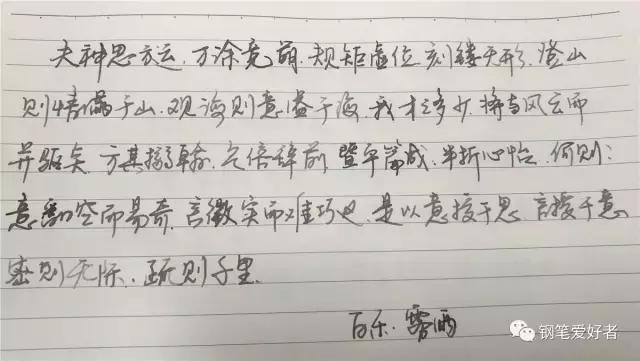 夫神思方运,万涂竞萌,规矩虚位,刻镂无形,登山
则情满于山,观海则意溢于海,我才之多少,将与风云而
并驱矣.方其搦翰,气倍辞前,暨乎篇成,半折心怡.何则:
意翻空而易奇,言徵实而难巧也.是以意授于思,言授于意
密则无际,疏则千里.
百乐.
钢笔爱好者